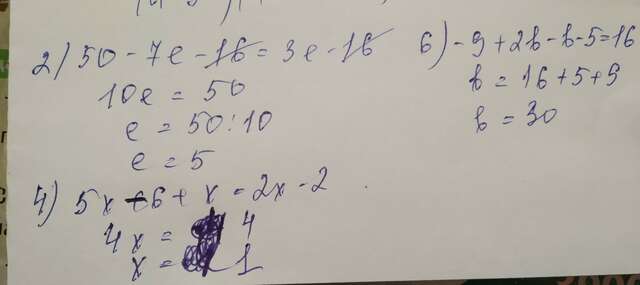 2) 50 - 7e - 16 = 3e - 16
10e = 50
e = 50 : 10
e = 5
4) 5x - 6 + x = 2x - 2
4x = 4
x = 1
6) - 9 + 2b - b - 5 = 16
b = 16 + 5 + 9
b = 30